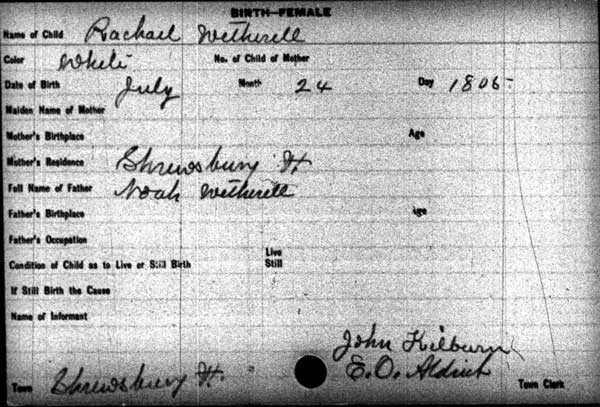 BIRTH—FEMALE
Name of Child Rachael Witherell
Color White No. of Child of Mother
Date of Birth July Month 24 Day 1805
Maiden Name of Mother
Mother's Birthplace Age
Mother's Residence Shrewsbury Vt.
Full Name of Father Noah Witherell
Father's Birthplace Age
Father's Occupation
Condition of Child as to Live or Still Birth Live Still
If Still Birth the Cause
Name of Informant
John Kilburn
E. O. Aldrich
Town Shrewsbury Vt. Town Clerk